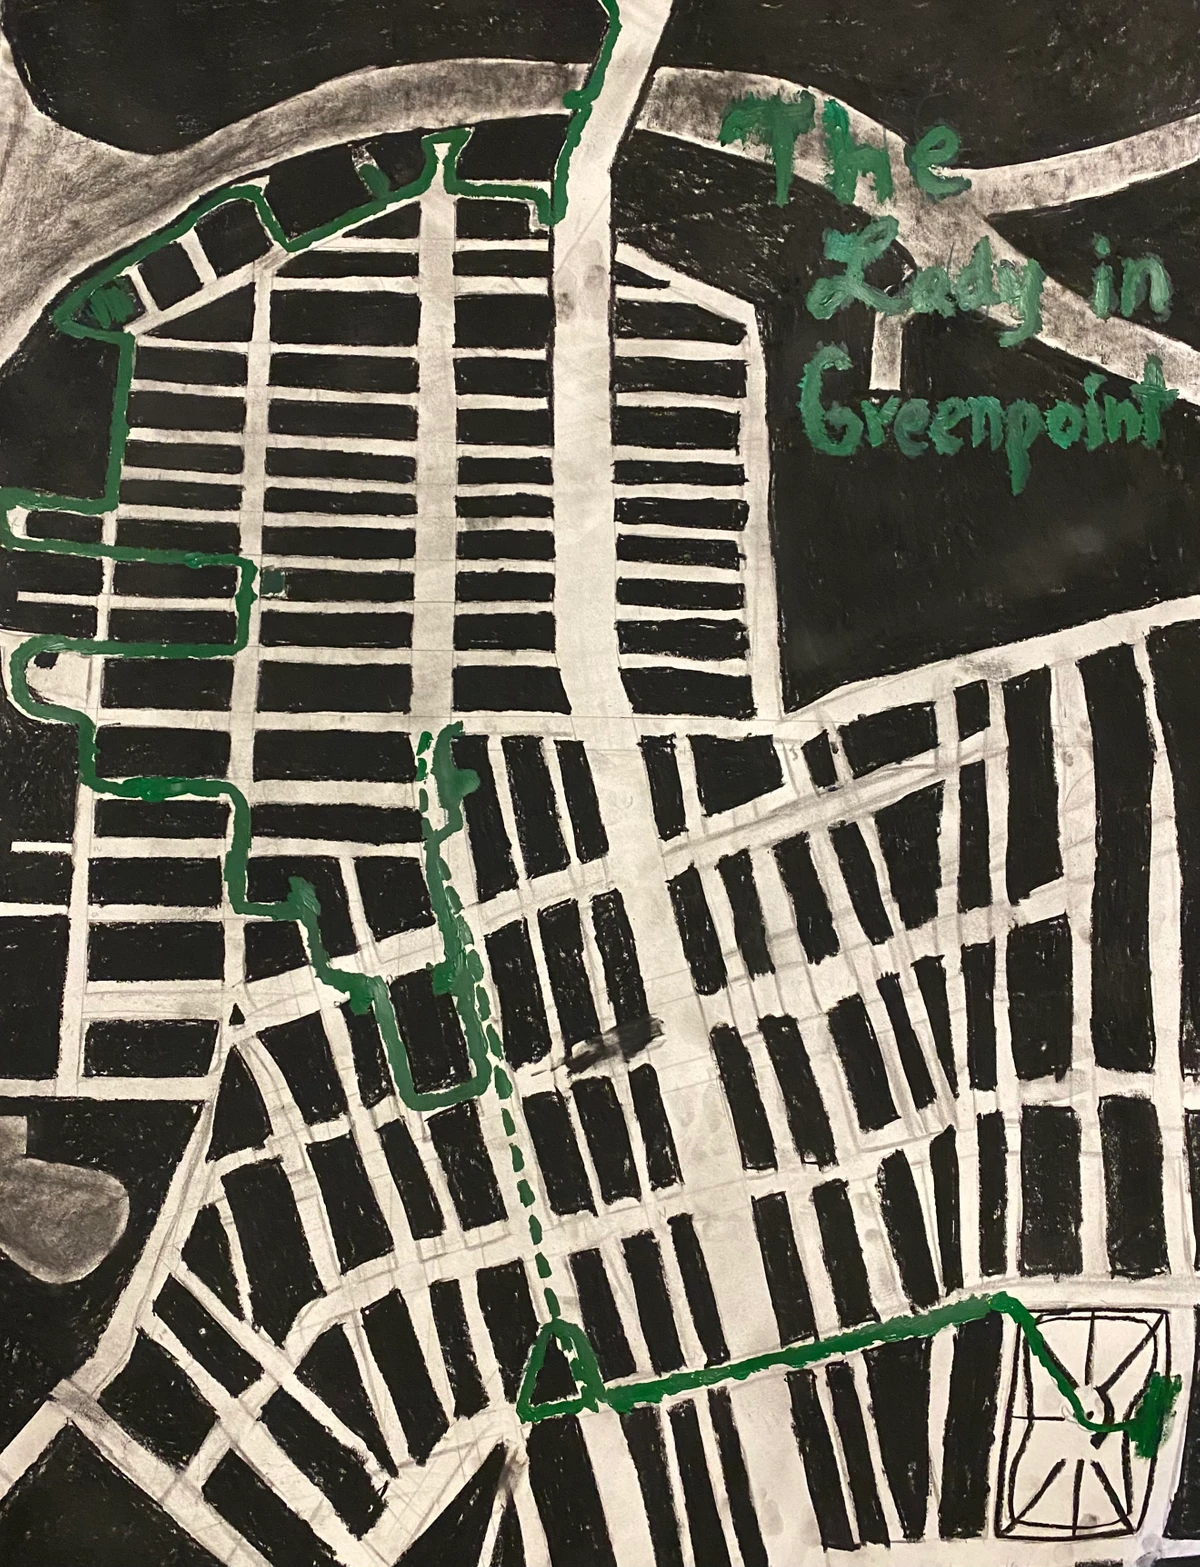 The
Lady in
Greenpoint